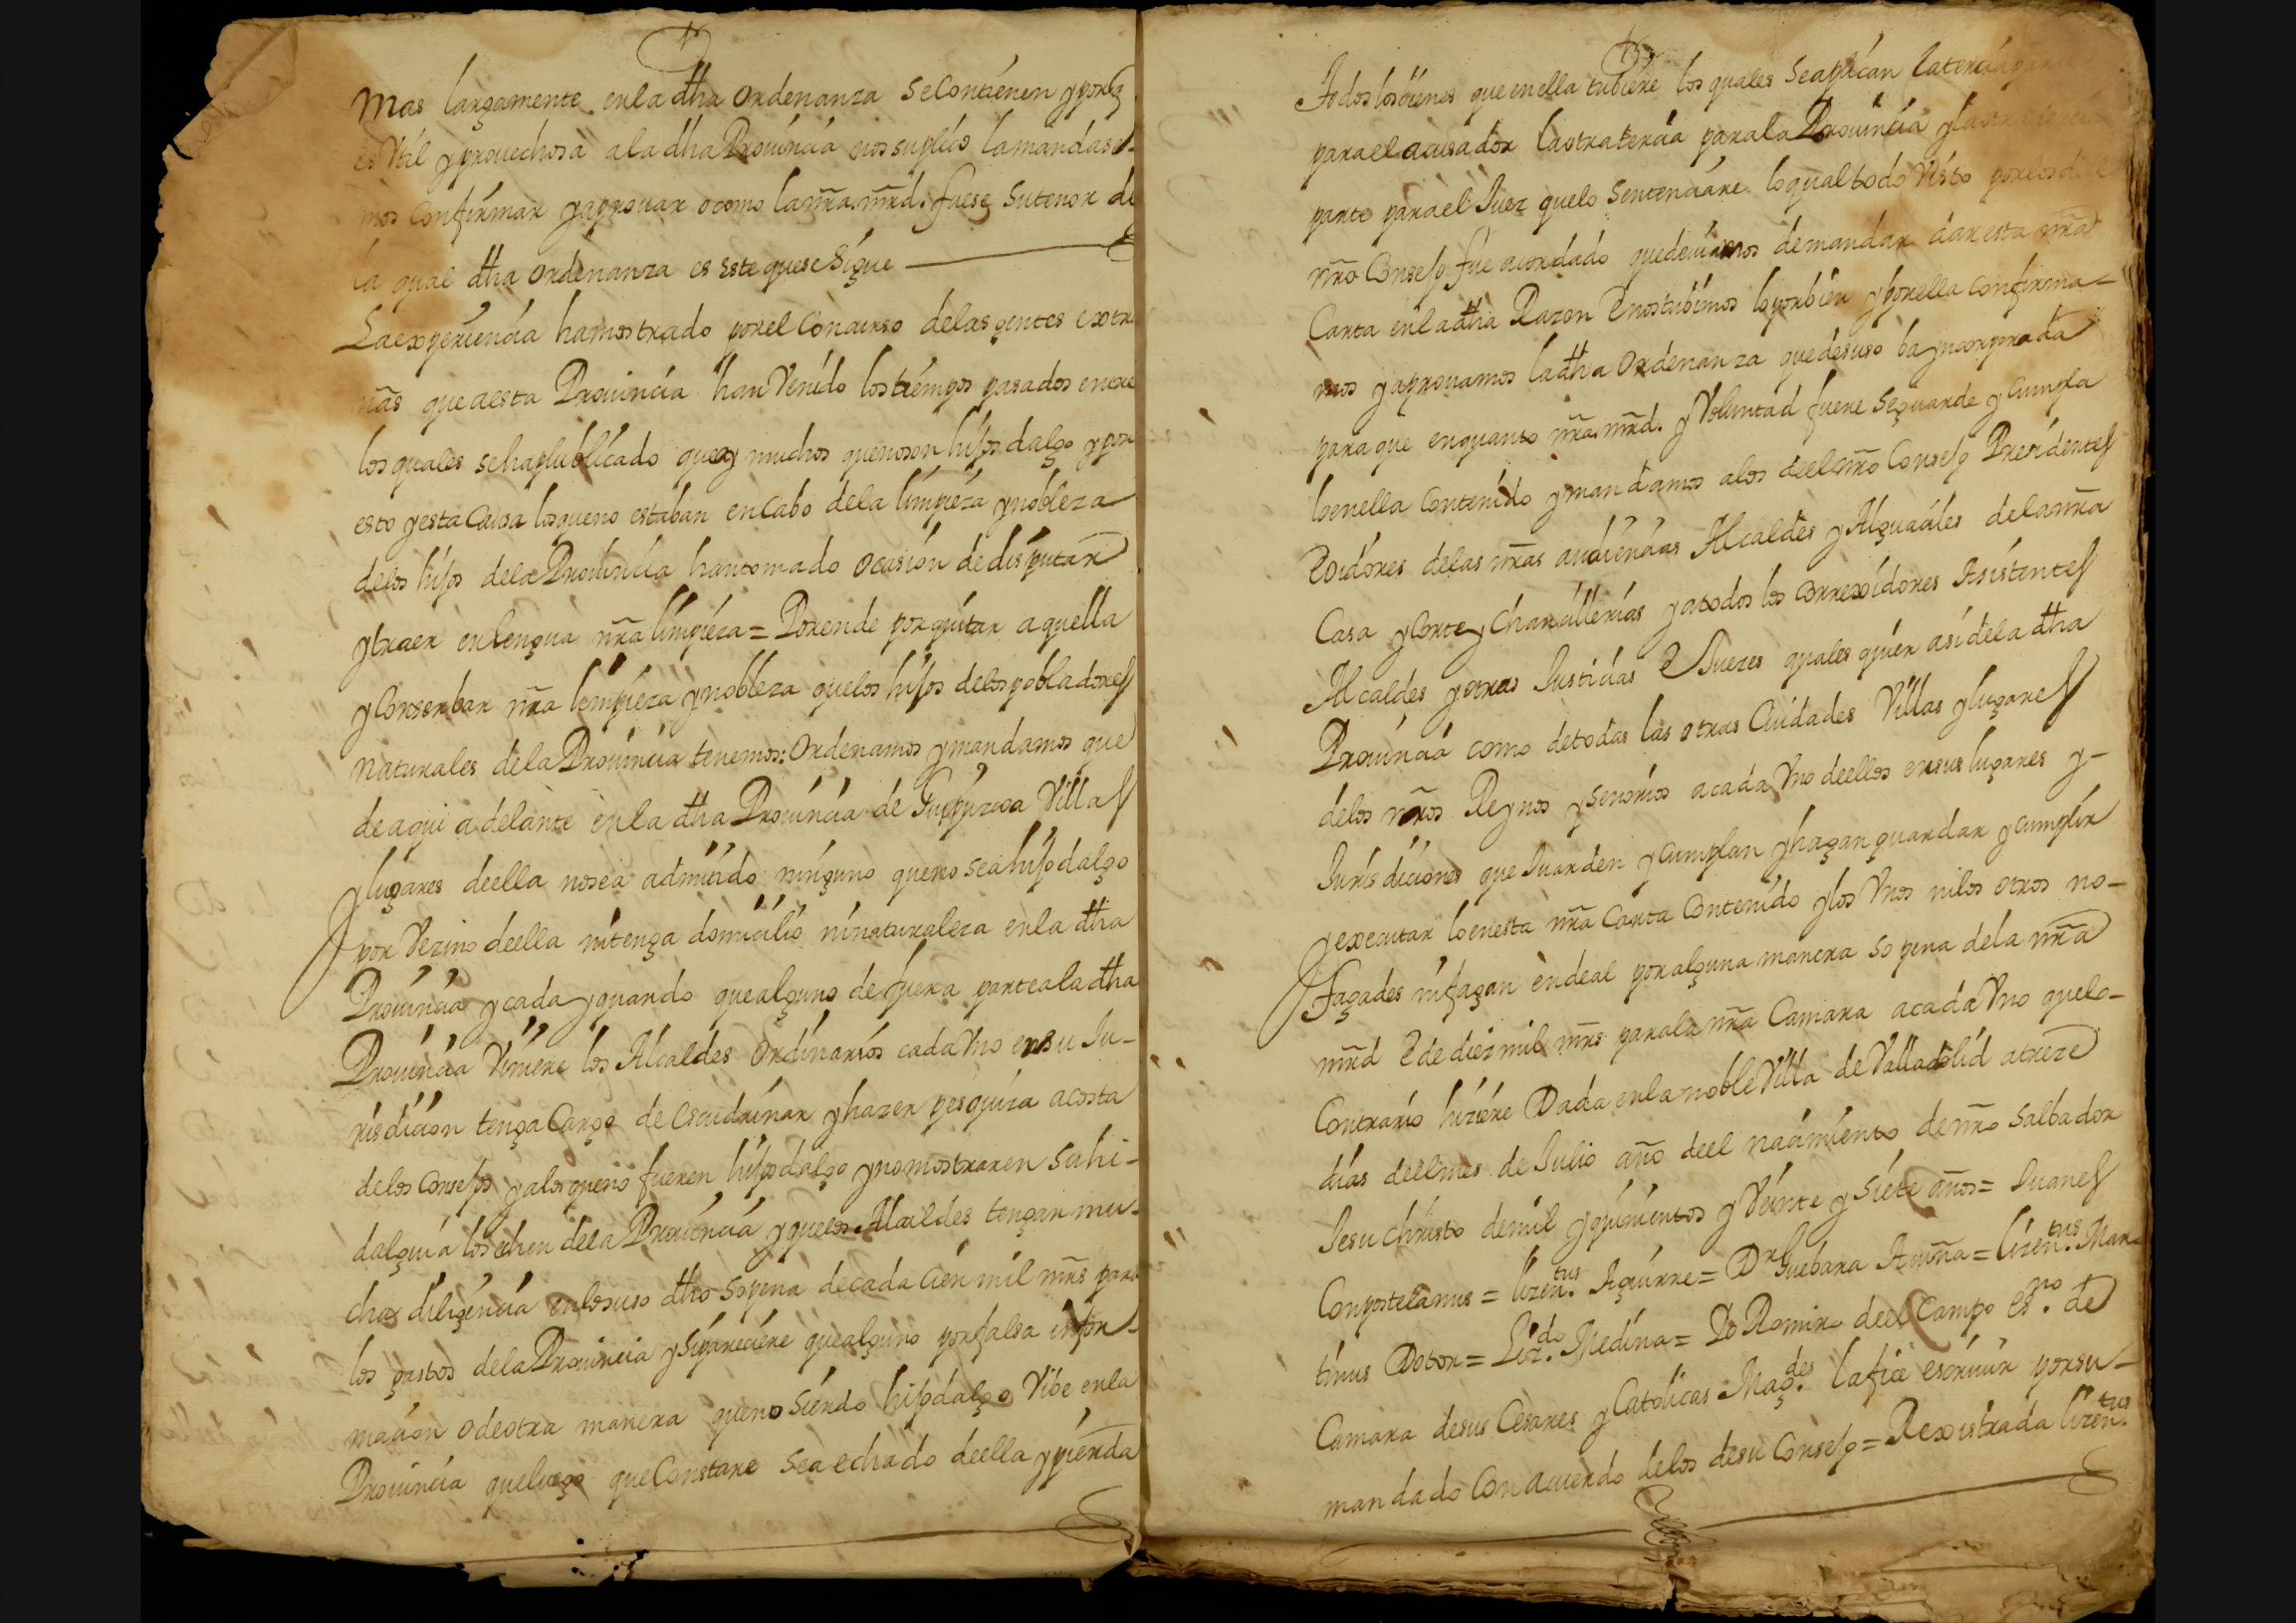 Mas largamente enla dha ordenanza se Contienen y porq
es Vtil y prouechosa ala dha Prouincia nos suplico la mandase-
mos Confirmar y aprouar o como la nra mrd. fuese Su tenor de
la qual dha ordenanza es este que se Sigue
La experiencia ha mostrado por el Concurso de las gentes extra
ñas que a esta Prouincia han Venido los tiempos pasados entre
los quales se ha publicado que ay muchos que no son hijos dalgo y por
esto y esta Causa los que no estaban en Cabo de la limpieza y nobleza
de los hijos de la Prouincia han tomado ocasion de disputar
y traer en lengua nra limpieza = Por ende por quitar aquella
y Conserbar nra limpieza y nobleza que los hijos de los pobladores
naturales de la Prouincia tenemos: Ordenamos y mandamos que
de aqui adelante en la dha Prouincia de Guipuzcoa Villas
y lugares de ella no sea admitido ninguno que no sea hijodalgo
por Vezino de ella ni tenga domicilio ni naturaleza en la dha
Prouincia y cada y quando que alguno de fuera parte a la dha
Prouincia Viniere los Alcaldes Ordinarios cada Vno en su Ju-
risdicion tenga Cargo de escudrinar y hazer pesquiza a costa
de los Consejos y a los que no fueren hijosdalgo y no mostraren su hi-
dalguia los echen de la Prouincia y que los Alcaldes tengan mu-
cha diligencia en lo suso dho so pena de cada Cien mil mrs para
los gastos de la Prouincia y Si pareciere que alguno por falsa infor-
macion o de otra manera que no Siendo hijodalgo Vibe en la
Prouincia que luego que Constare sea echado de ella y pierda
todos los bienes que en ella tubiere los quales se aplican la tercia
para el acusador la otra tercia para la Prouincia y la otra
parte para el Juez que lo Sentenciare lo qual todo Visto por los de
nro Consejo fue acordado que deuiamos de mandar dar esta nra
Carta en la dha Razon E nos tubimos lo por bien y por ella confirma-
mos y aprouamos la dha Ordenanza que de suso ba yncorporada
para que en quanto nra mrd. y Voluntad fuere se guarde y Cumpla
lo en ella Contenido y mandamos a los de el nro Consejo Presidentes
E oidores de las nras audiencias Alcaldes y Alguaciles de la nra
Casa y Corte y Chancillerias y a todos los Correxidores Asistentes
Alcaldes y otras Justicias E Juezes quales quier asi de la dha
Prouincia como de todas las otras Ciudades Villas y lugares
de los nros Reynos y Senorios a cada Vno de ellos en sus lugares y-
Jurisdiciones que Guarden y Cumplan y hagan guardar y cumplir
y executar lo en esta nra Carta Contenido y los Vnos ni los otros no-
fagades ni fagan en de al por alguna manera so pena de la nra
mrd E de diez mil mrs para la nra Camara a cada Vno que lo-
Contrario hiziere Dada en la noble Villa de Valladolid a treze
dias de el mes de Julio año de el nacimiento de nro Salbador
Jesu Christo de mil y quinientos y Veinte y Siete años = Juanes
Conpostelanus = lizentus. Aguirre = Dr Guebara Acuña = lizentus. Mar-
tinus Dotor = Lizdo. Medina = Yo Ramiro de el Campo esno. de
Camara de sus Cesares y Catolicas Magdes. la fice escriuir por su-
mandado Con acuerdo de los de su Consejo = Rexistrada lizentus.